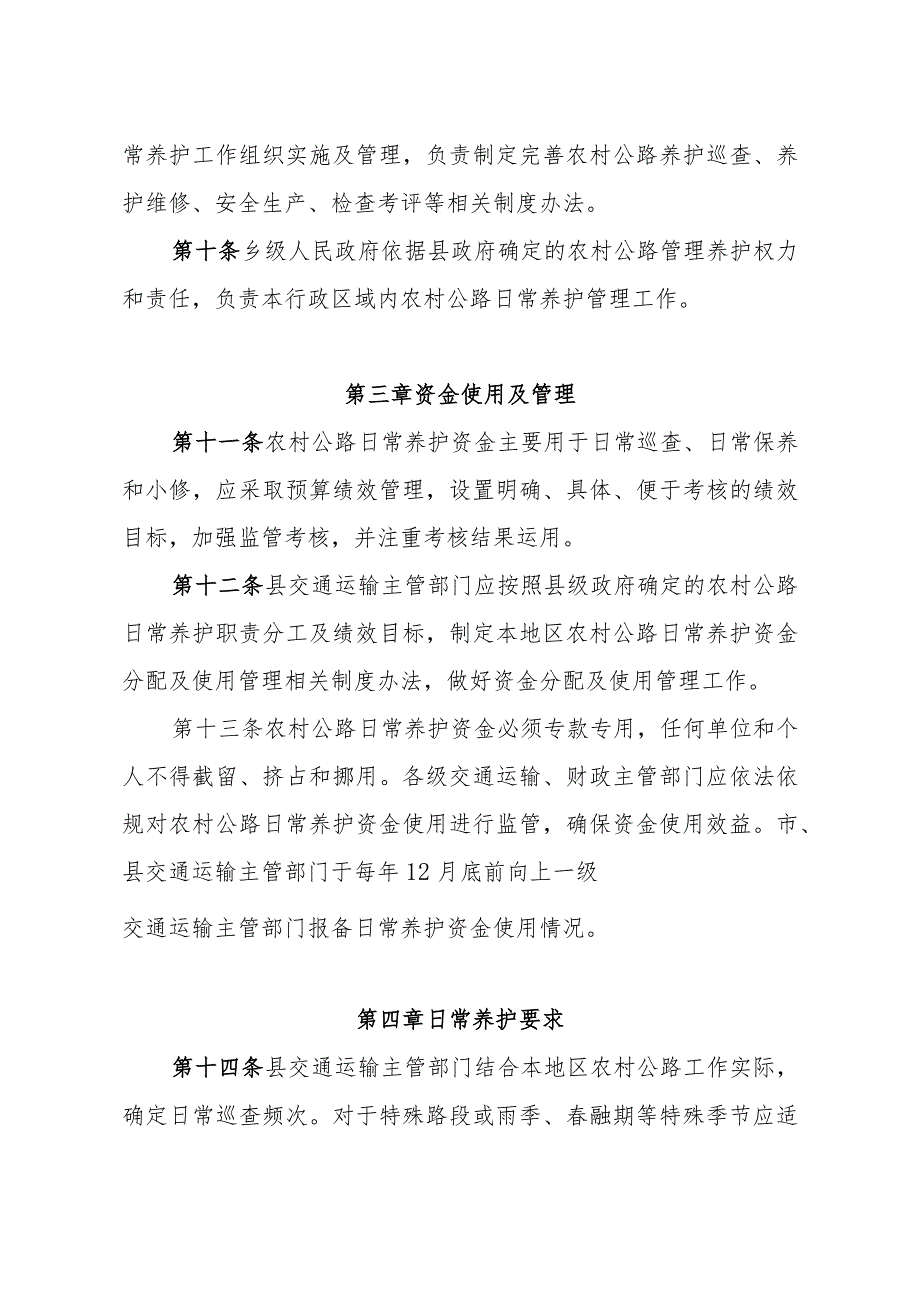 常养护工作组织实施及管理，负责制定完善农村公路养护巡查、养
护维修、安全生产、检查考评等相关制度办法。
第十条乡级人民政府依据县政府确定的农村公路管理养护权力
和责任，负责本行政区域内农村公路日常养护管理工作。
第三章资金使用及管理
第十一条农村公路日常养护资金主要用于日常巡查、日常保养
和小修，应采取预算绩效管理，设置明确、具体、便于考核的绩效
目标，加强监管考核，并注重考核结果运用。
第十二条县交通运输主管部门应按照县级政府确定的农村公路
日常养护职责分工及绩效目标，制定本地区农村公路日常养护资金
分配及使用管理相关制度办法，做好资金分配及使用管理工作。
第十三条农村公路日常养护资金必须专款专用，任何单位和个
人不得截留、挤占和挪用。各级交通运输、财政主管部门应依法依
规对农村公路日常养护资金使用进行监管，确保资金使用效益。市、
县交通运输主管部门于每年12月底前向上一级
交通运输主管部门报备日常养护资金使用情况。
第四章日常养护要求
第十四条县交通运输主管部门结合本地区农村公路工作实际，
确定日常巡查频次。对于特殊路段或雨季、春融期等特殊季节应适